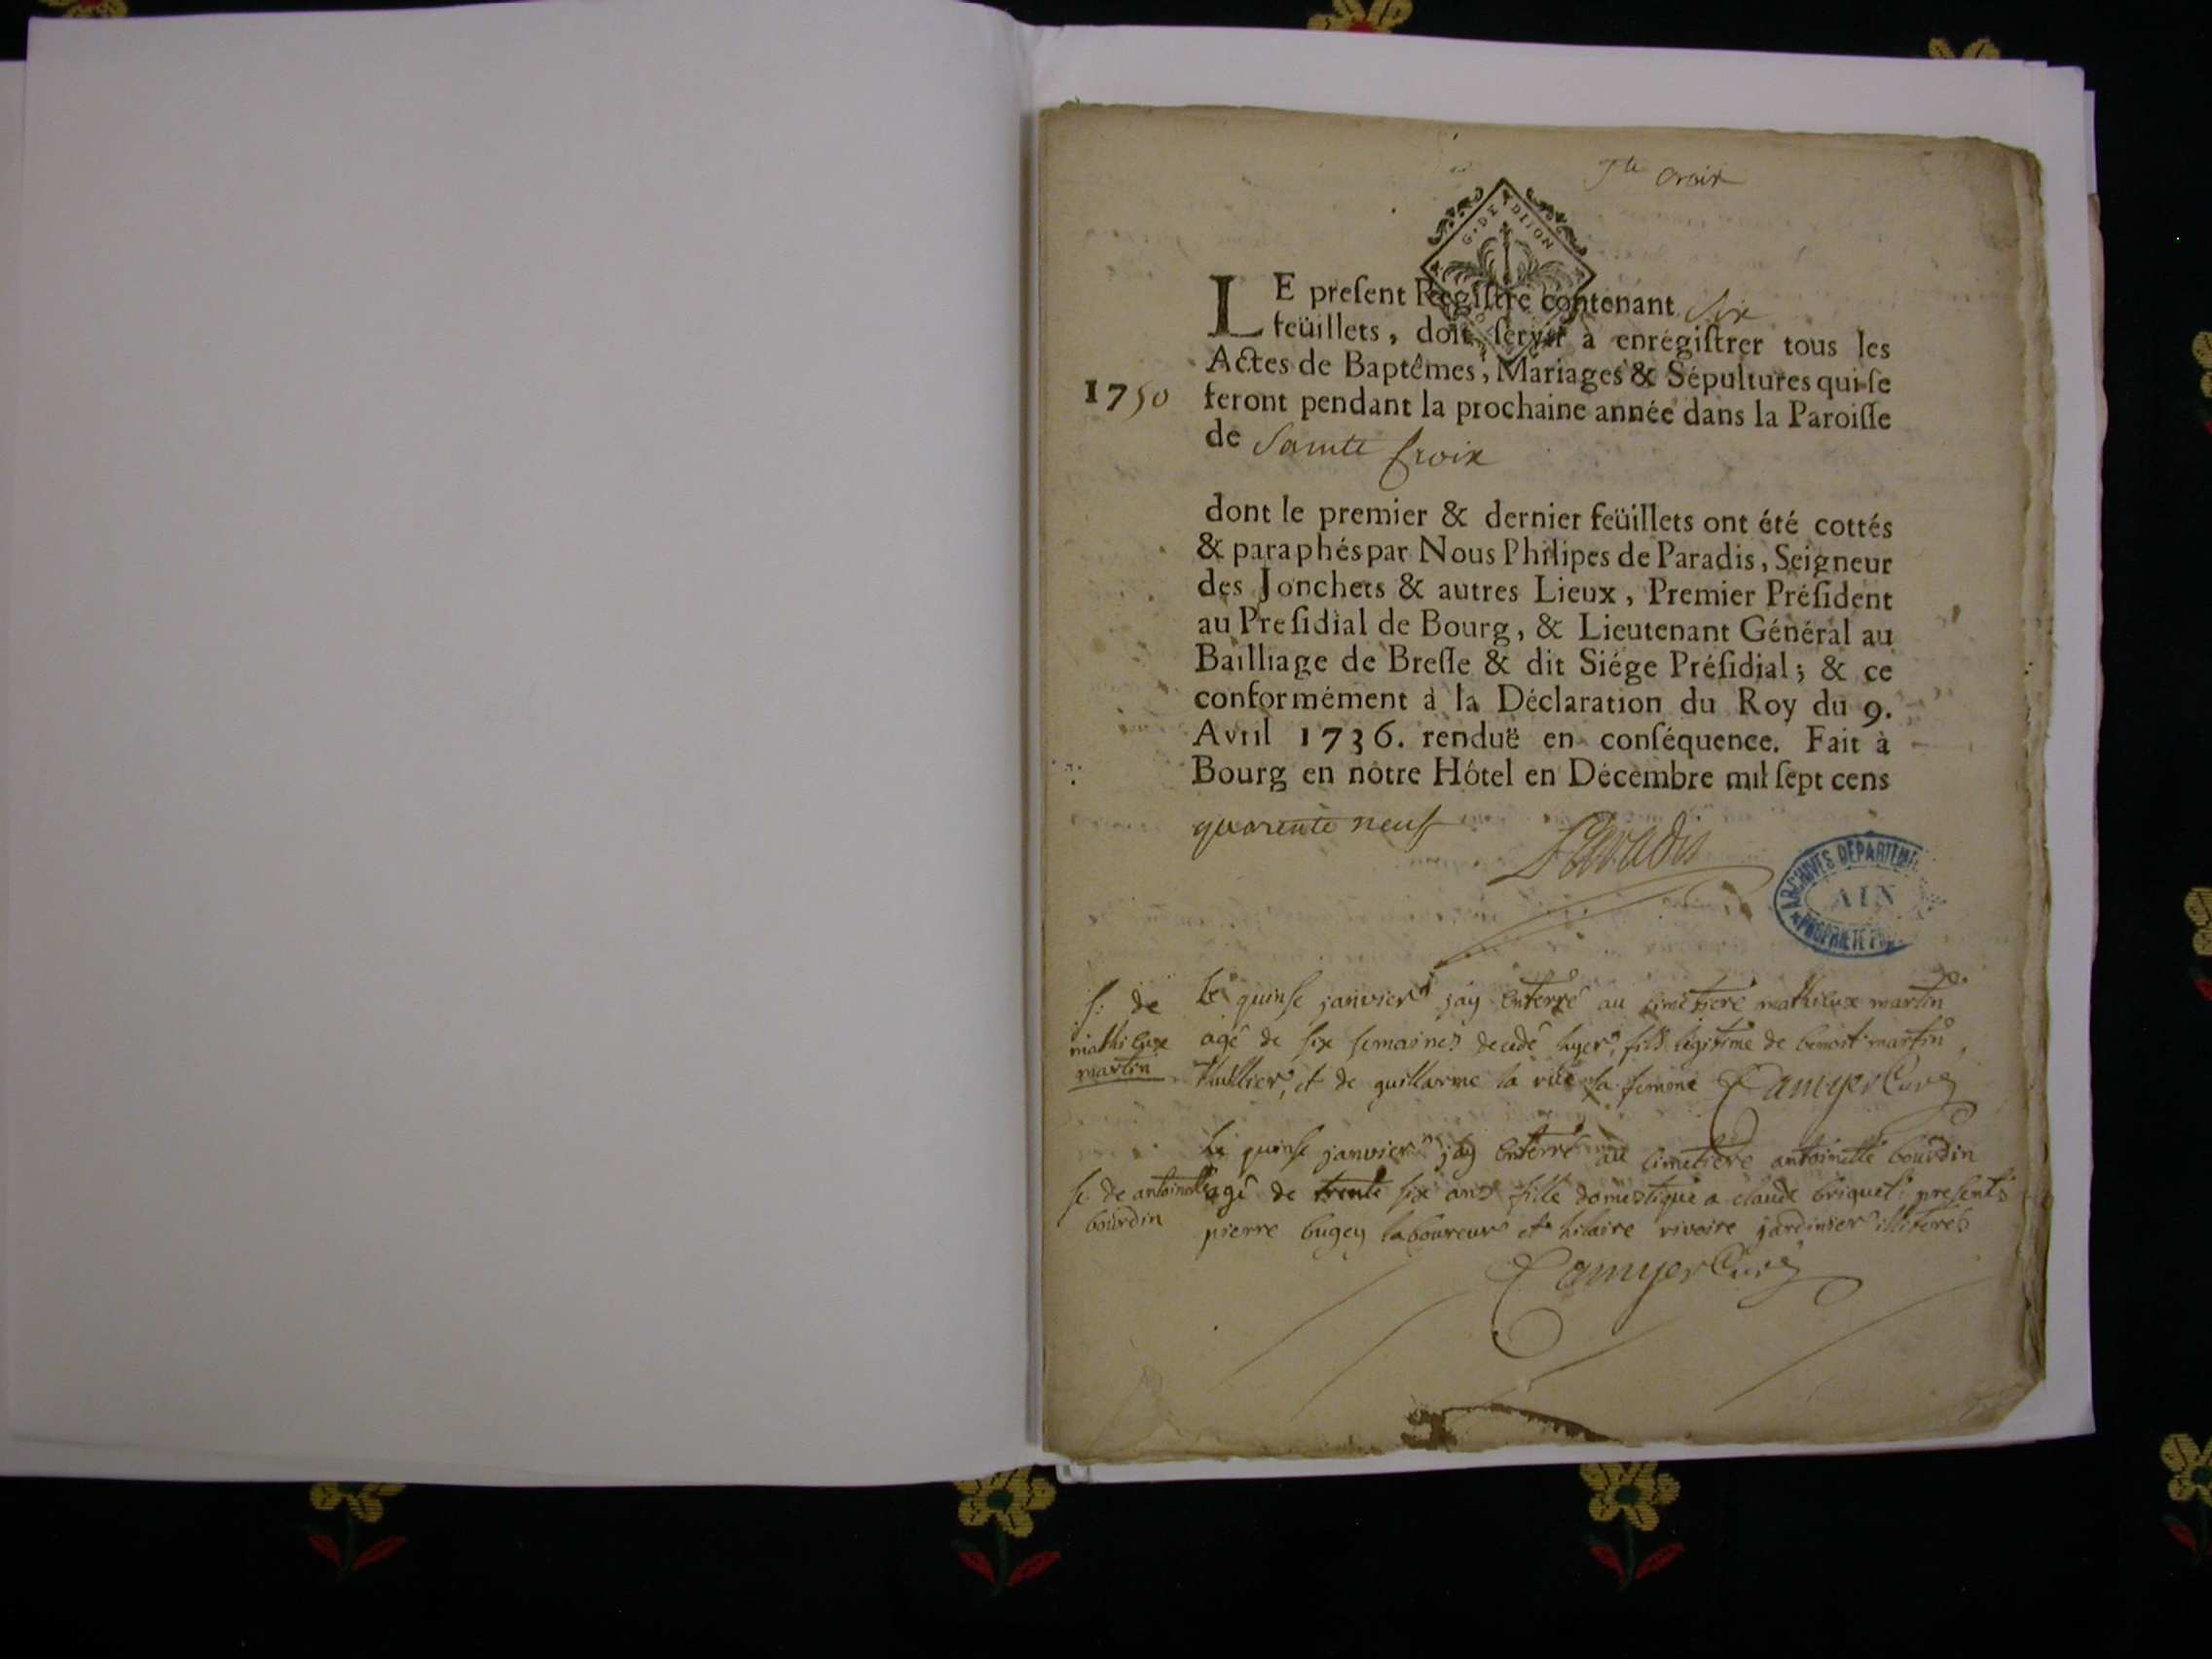 Ste Croix
G. DE DIJON
LE preſent Regiſtre contenant Six
feüillets, doit ſervir à enrégiſtrer tous les
Actes de Baptêmes, Mariages & Sépultures qui ſe
1750 feront pendant la prochaine année dans la Paroiſſe
de Sainte Croix
dont le premier & dernier feüillets ont été cottés
& paraphés par Nous Philipes de Paradis, Seigneur
des Jonchets & autres Lieux, Premier Préſident
au Preſidial de Bourg, & Lieutenant Général au
Bailliage de Breſſe & dit Siége Préſidial; & ce
conformément à la Déclaration du Roy du 9.
Avril 1736. renduë en conſéquence. Fait à
Bourg en nôtre Hôtel en Décembre mil ſept cens
quarente neuf
Paradis
ARCHIVES DÉPARTEM
AIN
PROPRIÉTÉ PU
S: de
mathieux
martin
Le quinse janvier jay enterré au cimetiere mathieux martin
agé de six semaines decedé hyer, fils legitime de benoit martin
thuillier, et de guillarme la rue sa femme Camyer Curé
Le quinse janvier jay enterré au cimetiere antoinette bourdin
S. de antoinette
bourdin
agé de trente six ans fille domestique a claude briquet presents
pierre bugey laboureur et hilaire rivoire jardinier illiteres
Camyer Curé